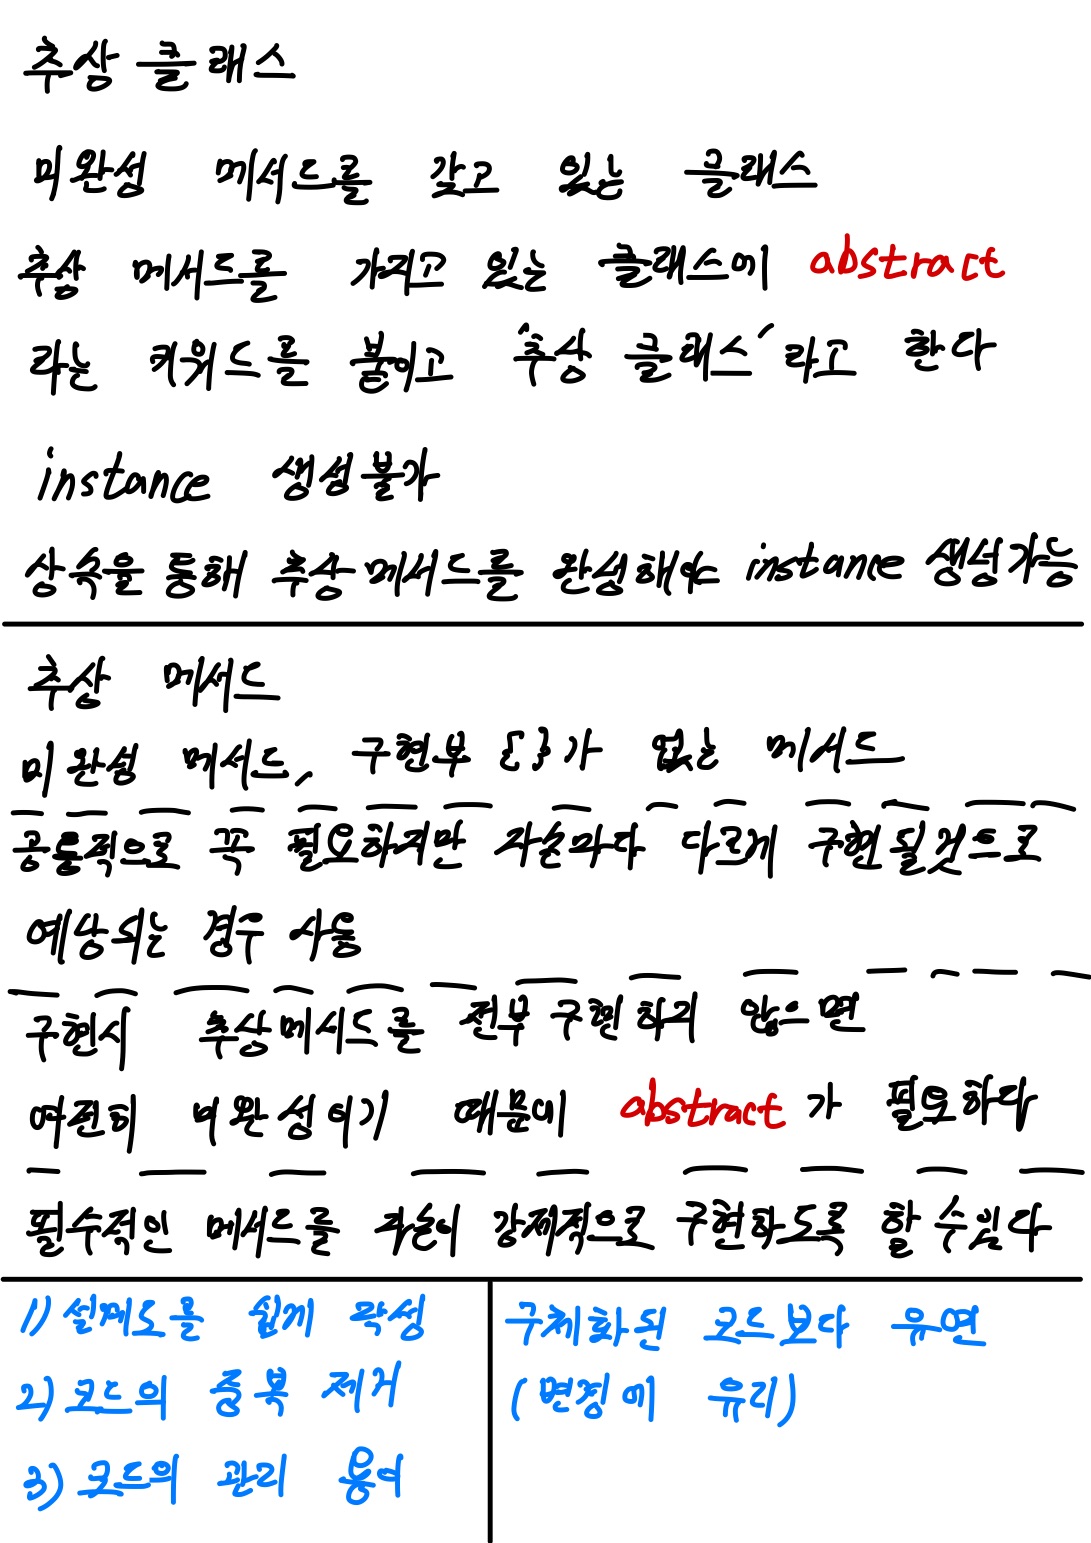 추상 클래스
미완성 메서드를 갖고 있는 클래스
추상 메서드를 가지고 있는 클래스에 abstract
라는 키워드를 붙이고 '추상 클래스' 라고 한다
instance 생성불가
상속을 통해 추상메서드를 완성해야 instance 생성가능
추상 메서드
미완성 메서드, 구현부 { }가 없는 메서드
공통적으로 꼭 필요하지만 자손마다 다르게 구현될것으로
예상되는 경우 사용
구현시 추상메서드를 전부 구현하지 않으면
여전히 미완성이기 때문에 abstract가 필요하다
필수적인 메서드를 자손이 강제적으로 구현하도록 할 수 있다
1) 설계도를 쉽게 작성
2) 코드의 중복 제거
3) 코드의 관리 용이
구체화된 코드보다 유연
(변경에 유리)